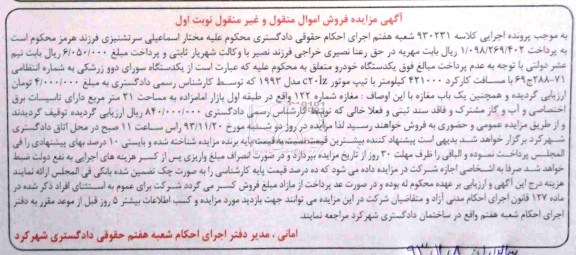 آگهی مزایده فروش اموال منقول و غیر منقول نوبت اول
به موجب پرونده اجرایی کلاسه ۹۳۰۲۳۱ شعبه هفتم اجرای احکام حقوقی دادگستری محکوم علیه مختار اسماعیلی سرتشنیزی فرزند هرمز محکوم است
به پرداخت ۱/۰۹۸/۲۶۹/۴۰۲ ریال بابت مهریه در حق رعنا نصیری خراجی فرزند نصیر با وکالت شهریار ثابتی و پرداخت مبلغ ۶/۰۵۰/۰۰۰ ریال بابت نیم
عشر دولتی با توجه به عدم پرداخت مبالغ فوق یکدستگاه خودرو متعلق به محکوم علیه که عبارت است از یکدستگاه سورای دوو زرشکی به شماره انتظامی
۷۱-۲۸۸ج۶۹ با مسافت کارکرد ۴۲۱۰۰۰ کیلومتر با تیپ موتور c20lz مدل ۱۹۹۳ که توسط کارشناس رسمی دادگستری به مبلغ ۴/۰۰۰/۰۰۰ تومان
ارزیابی گردیده و همچنین یک باب مغازه با این اوصاف : مغازه شماره ۱۲۲ واقع در طبقه اول بازار امامزاده به مساحت ۲۱ متر مربع دارای تاسیسات برق
اختصاصی و آب و گاز مشترک و فاقد سند ثبتی و فعلا خالی که توسط کارشناس رسمی دادگستری ۸۴۰/۰۰۰/۰۰۰ ریال ارزیابی گردیده توقیف گردیدند
و از طریق مزایده عمومی و حضوری به فروش خواهند رسید لذا مزایده در روز دو شنبه مورخ ۹۳/۱۱/۲۰ راس ساعت ۱۱ صبح در محل اتاق دادگستری
شهرکرد برگزار خواهد شد بدیهی است پیشنهاد کننده بیشترین قیمت نسبت به قیمت پایه برنده مزایده شناخته شده و بایستی ۱۰ درصد بهای پیشنهادی را فی
المجلس پرداخت نموده و الباقی را ظرف مهلت ۳۰ روز از تاریخ مزایده بپردازد و در صورت انصراف مبلغ واریزی پس از کسر هزینه های اجرایی به نفع دولت ضبط
خواهد شد صرفا به اشخاصی اجازه شرکت در مزایده داده می شود که ده درصد قیمت پایه کارشناسی را به صورت چک تضمین شده بانکی فی المجلس ارائه نمایند
هزینه درج این آگهی و ارزیابی بر عهده محکوم له بوده و در صورت عد پرداخت از مازاد مبلغ فروش کسر می گردد شرکت برای عموم به استثنای افراد ذکر شده در
ماده ۱۲۷ قانون اجرای احکام مدنی آزاد و متقاضیان شرکت در این مزایده می توانند جهت بازدید مورد مزایده و کسب اطلاعات بیشتر ۵ روز قبل از موعد مقرر به دفتر
اجرای احکام شعبه هفتم واقع در ساختمان دادگستری شهرکرد مراجعه نمایند.
امانی ، مدیر دفتر اجرای احکام شعبه هفتم حقوقی دادگستری شهرکرد